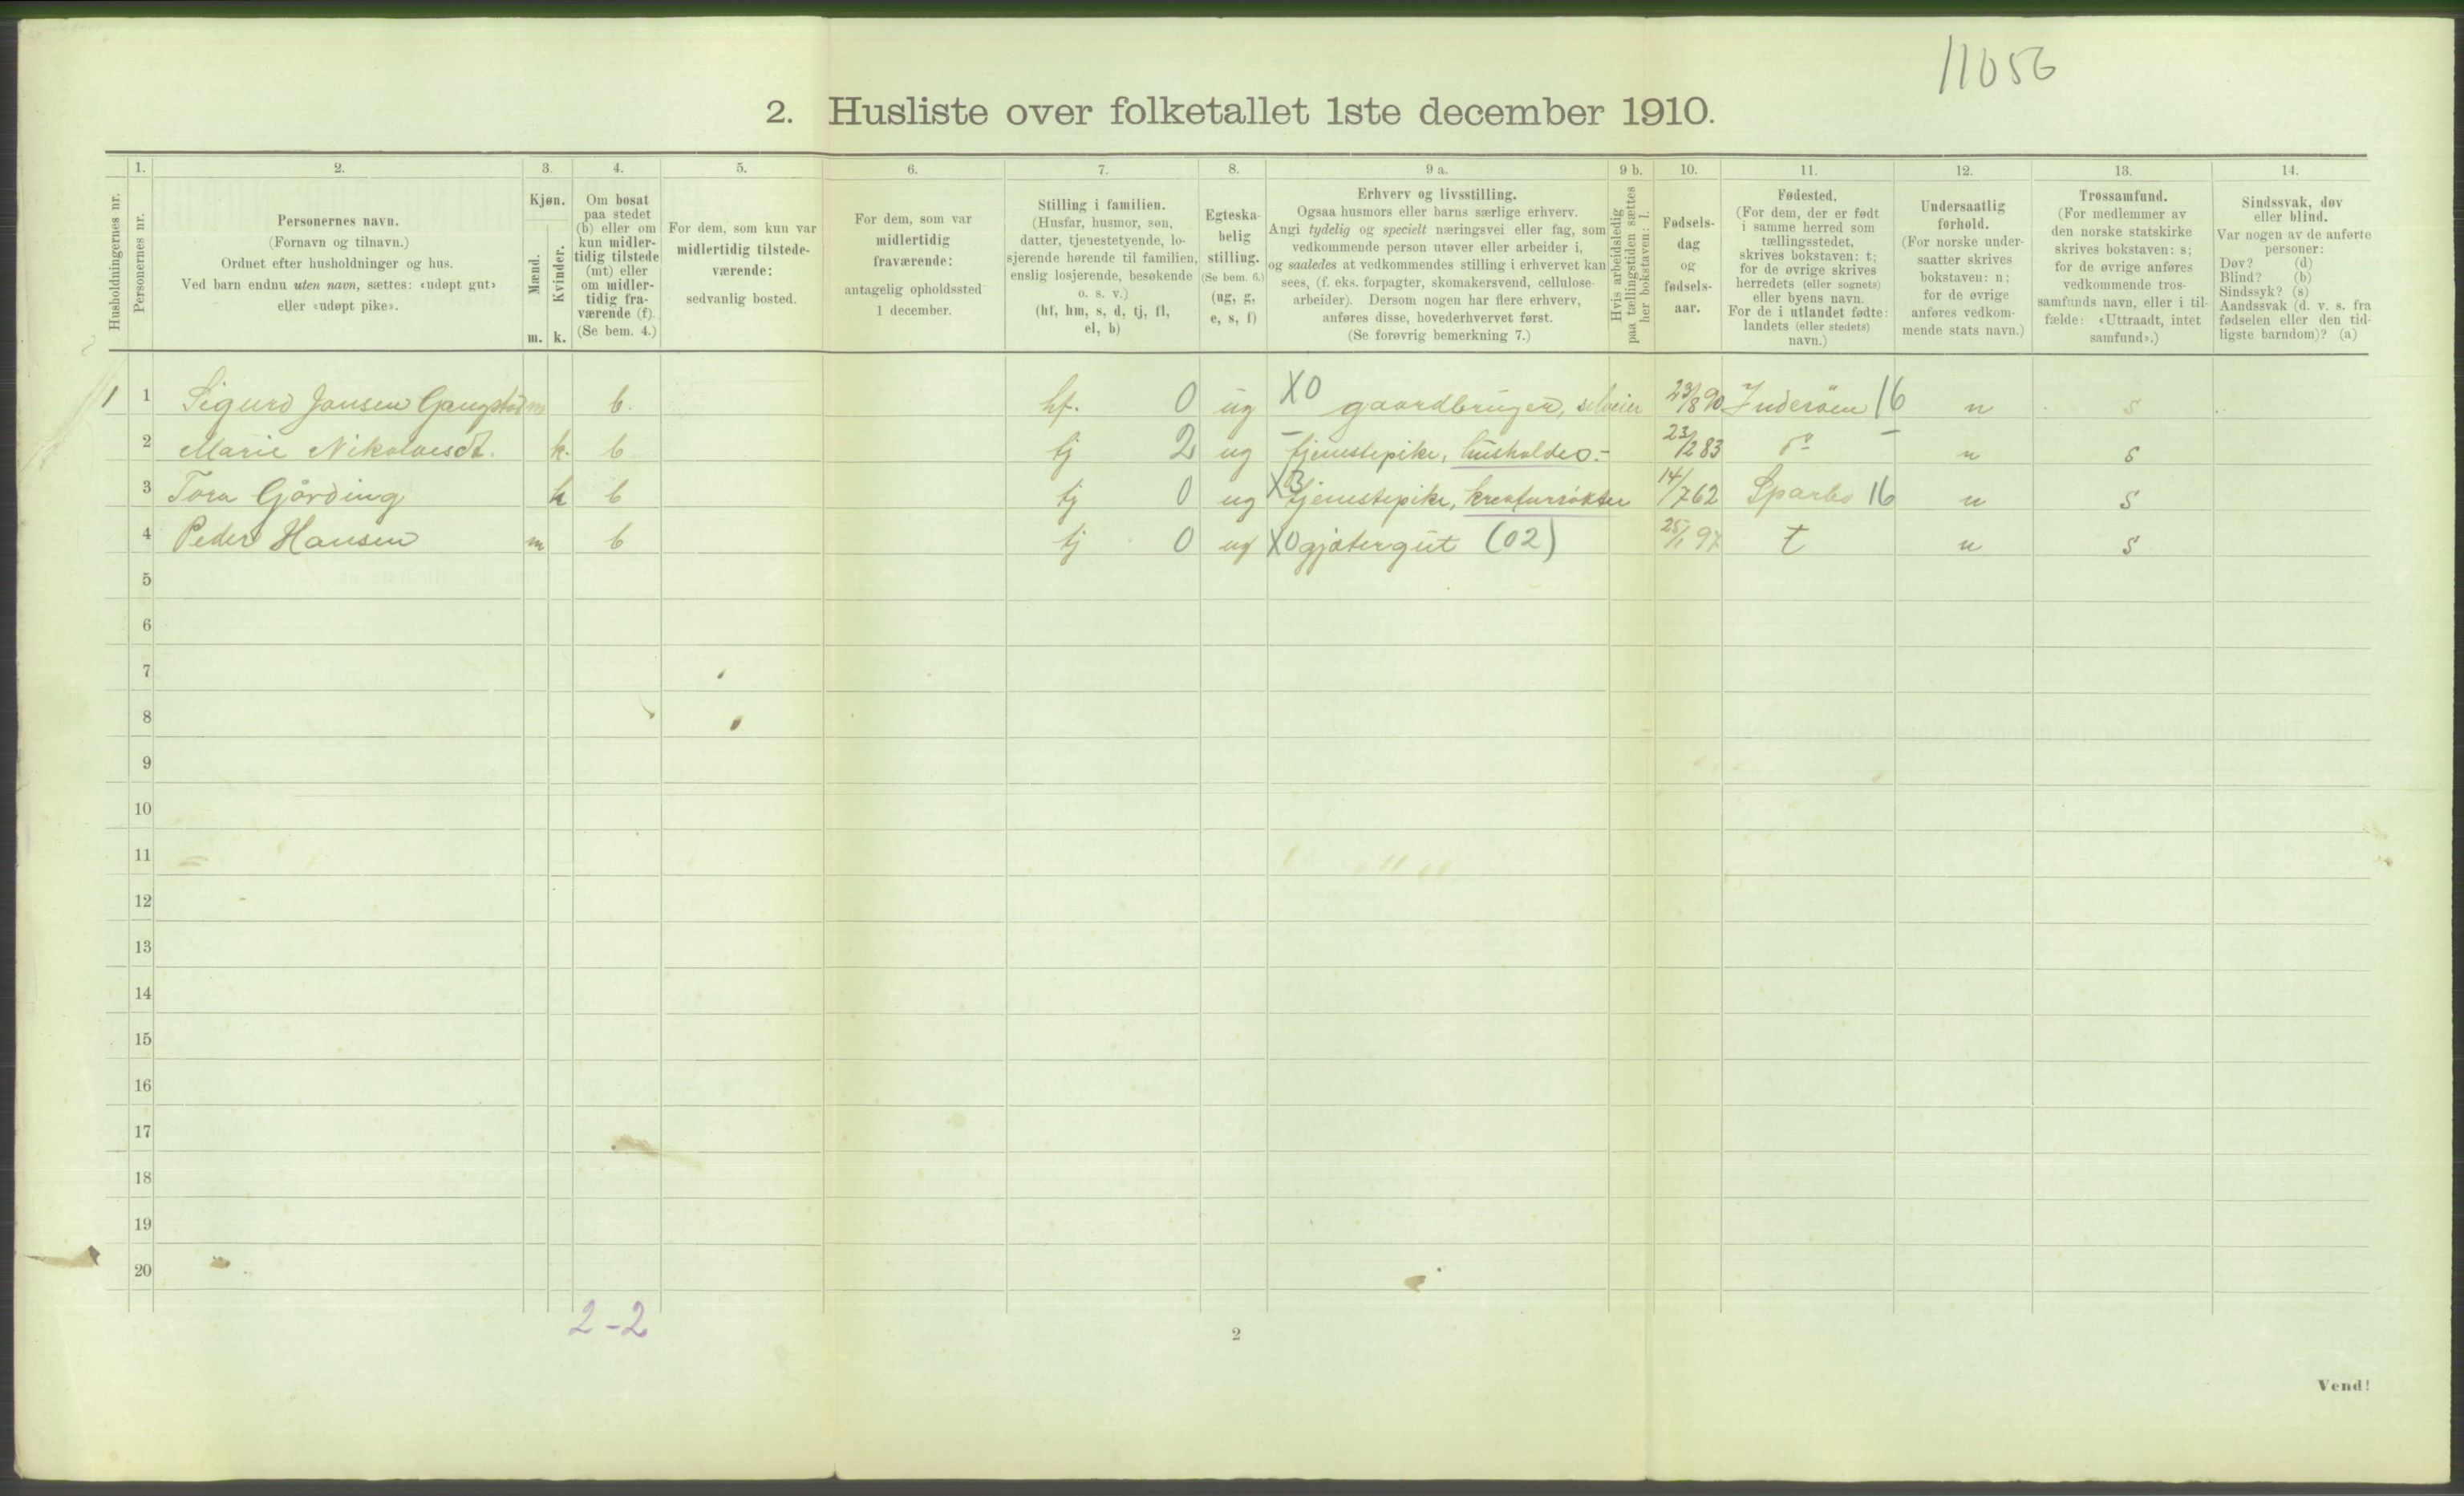 11056
2. Husliste over folketallet 1ste december 1910.
1. 2. 3. 4. 5. 6. 7. 8. 9 a. 9 b. 10. 11. 12. 13. 14.
Husholdningernes nr.
Personernes nr.
Personernes navn.
(Fornavn og tilnavn.)
Ordnet efter husholdninger og hus.
Ved barn endnu uten navn, sættes: «udøpt gut»
eller «udøpt pike».
Kjøn.
Mænd.
Kvinder.
m. k.
Om bosat
paa stedet
(b) eller om
kun midler-
tidig tilstede
(mt) eller
om midler-
tidig fra-
værende (f).
(Se bem. 4.)
For dem, som kun var
midlertidig tilstede-
værende:
sedvanlig bosted.
For dem, som var
midlertidig
fraværende:
antagelig opholdssted
1 december.
Stilling i familien.
(Husfar, husmor, søn,
datter, tjenestetyende, lo-
sjerende hørende til familien,
enslig losjerende, besøkende
o. s. v.)
(hf, hm, s, d, tj, fl,
el, b)
Egteska-
belig
stilling.
(Se bem. 6.)
(ug, g,
e, s, f)
Erhverv og livsstilling.
Ogsaa husmors eller barns særlige erhverv.
Angi tydelig og specielt næringsvei eller fag, som
vedkommende person utøver eller arbeider i,
og saaledes at vedkommendes stilling i erhvervet kan
sees, (f. eks. forpagter, skomakersvend, cellulose-
arbeider). Dersom nogen har flere erhverv,
anføres disse, hovederhvervet først.
(Se forøvrig bemerkning 7.)
Hvis arbeidsledig
paa tællingstiden sættes
her bokstaven: l.
Fødsels-
dag
og
fødsels-
aar.
Fødested.
(For dem, der er født
i samme herred som
tællingsstedet,
skrives bokstaven: t;
for de øvrige skrives
herredets (eller sognets)
eller byens navn.
For de i utlandet fødte:
landets (eller stedets)
navn.)
Undersaatlig
forhold.
(For norske under-
saatter skrives
bokstaven: n;
for de øvrige
anføres vedkom-
mende stats navn.)
Trossamfund.
(For medlemmer av
den norske statskirke
skrives bokstaven: s;
for de øvrige anføres
vedkommende tros-
samfunds navn, eller i til-
fælde: «Uttraadt, intet
samfund».)
Sindssvak, døv
eller blind.
Var nogen av de anførte
personer:
Døv? (d)
Blind? (b)
Sindssyk? (s)
Aandssvak (d. v. s. fra
fødselen eller den tid-
ligste barndom)? (a)
1 1 Sigurd Jansen Gangstad m b. hf. 0 ug X0 gaardbruger, selveier 23/8 90 Inderøen 16 n s
2 Marie Nikolaisdt. k. b tj 2 ug - tjenestepike, husholder.- 23/2 83 do - n s
3 Tora Gårding k b tj 0 ug X3 tjenestepike, kreaturrøkter 14/7 62 Sparbo 16 n s
4 Peder Hansen m b tj 0 ug X0 gjætergut (02) 25/1 97 t n s
5
6
7
8
9
10
11
12
13
14
15
16
17
18
19
20
2-2
2
Vend!